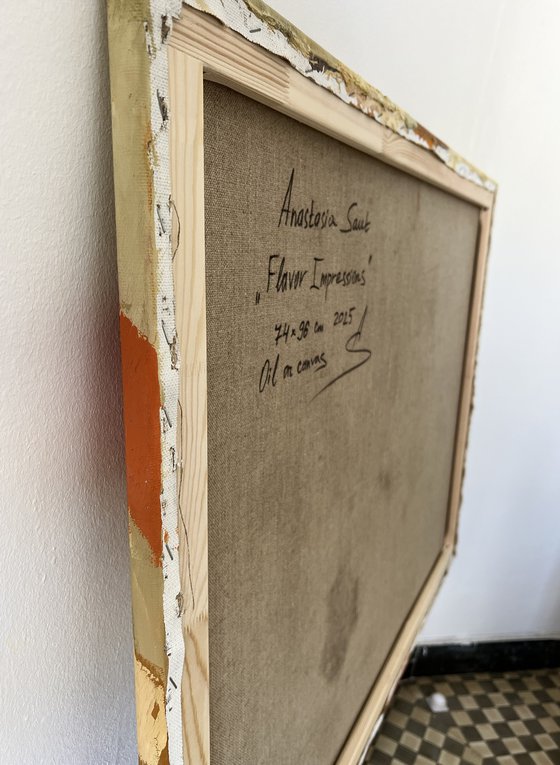 Anastasia Saut
„Flavor Impressions"
74×96 cm 2025
Oil on canvas